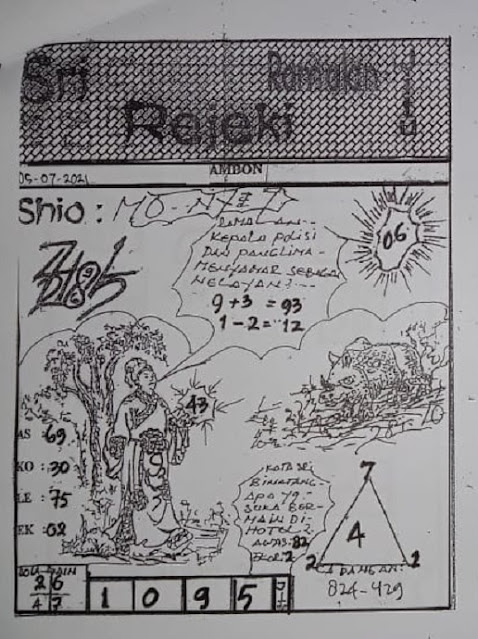 Sri
Ramalan
Rejeki
AMBON
05-07-2021
Shio : MO-NYET
06
RAMALAN--
KEPALA POLISI
DAN PANGLIMA-
MENYAMAR SEBAGAI
NELAYAN?---
9+3 = 93
1-2 = 12
43
AS : 69
KO : 30
LE : 75
EK : 02
KATA SRI
BINATANG-
APA YG.-
SUKA BER-
MAIN DI-
HOTEL?
82
EKOR: 2
7
4
2
1
CADANGAN:
824-429
26
47
1 0 9 5